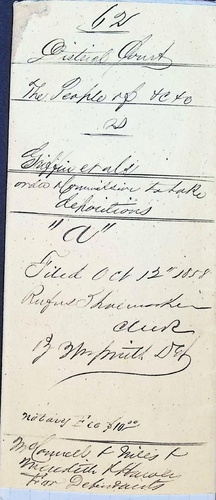 62
District Court
The People of &c &c
vs
Griffin et als
order & Commission to take
depositions
"A"
Filed Oct 12th 1858
Rufus Shoemaker
clerk
By Wm Smith Dty
notary Fee $10.00
McConnell & Niles &
Meredith & Hawley
For Defendants